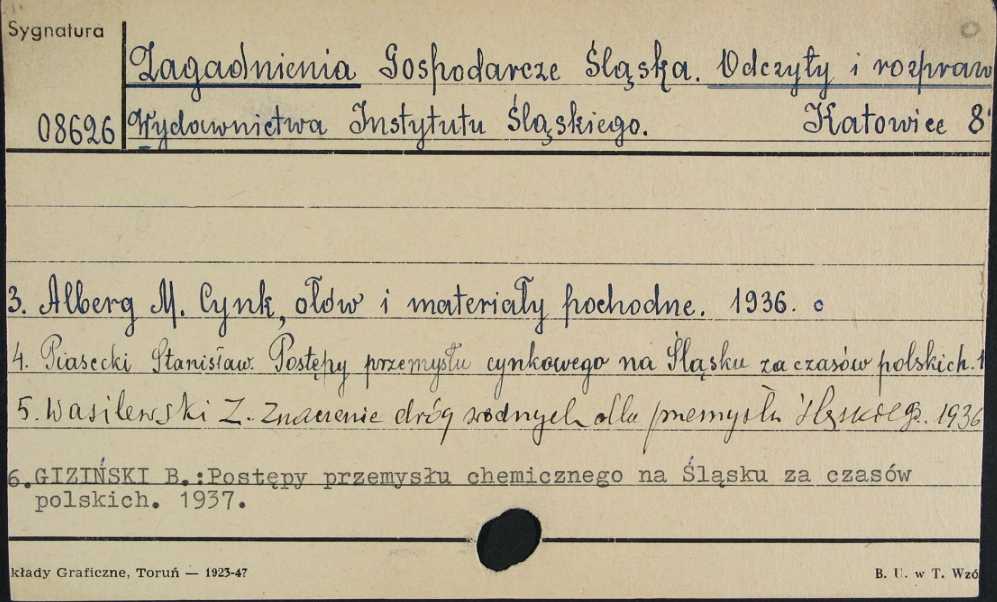 Sygnatura
Zagadnienia Gospodarcze Śląska. Odczyty i rozpraw
08626 Wydawnictwa Instytutu Śląskiego. Katowice 8°
3. Alberg M. Cynk, ołów i materiały pochodne. 1936.
4. Piasecki Stanisław. Postępy przemysłu cynkowego na Śląsku za czasów polskich. 1
5. Wasilewski Z. Znaczenie dróg wodnych dla przemysłu śląskieg. 1936
6. GIZIŃSKI B.: Postępy przemysłu chemicznego na Śląsku za czasów
polskich. 1937.
kłady Graficzne, Toruń — 1923-47 B. U. w T. Wzó